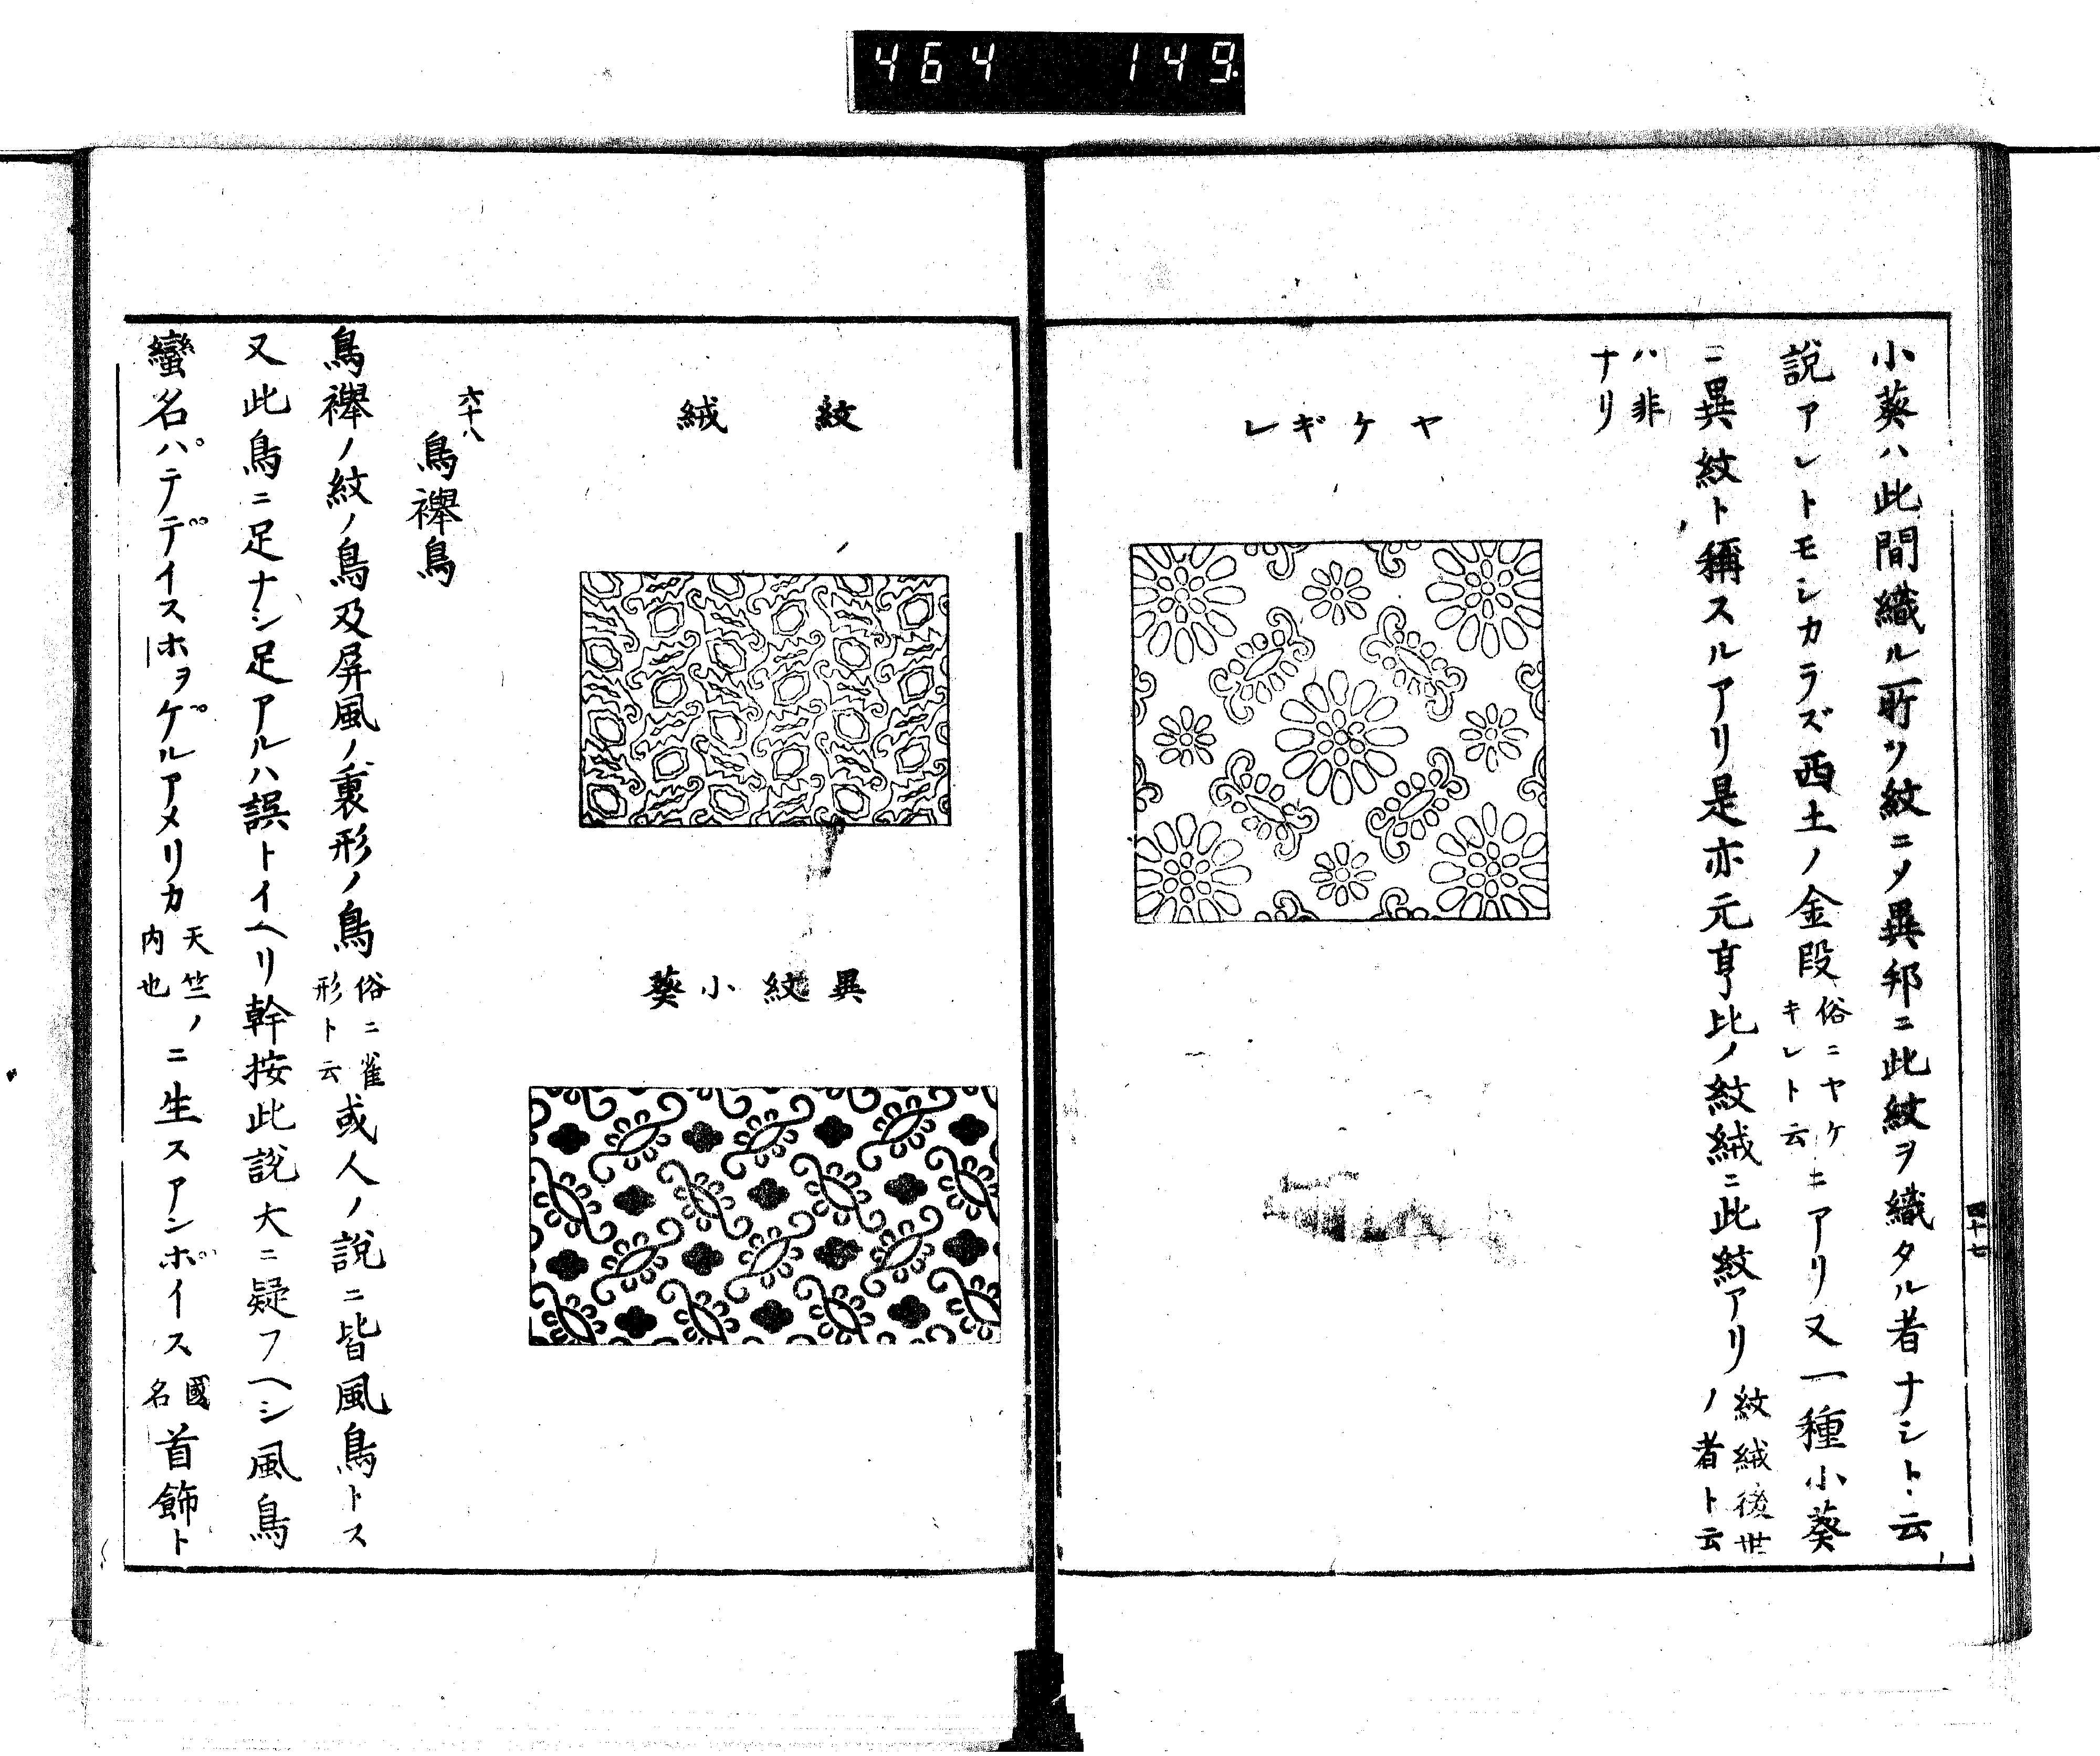 464 149
小葵ハ此間織ル所ツ紋ニメ異邦ニ此紋ヲ織タル者ナシト云
説アレトモシカラズ西土ノ金段俗ニヤケキレト云ニアリ又一種小葵
ニ異紋ト稱スルアリ是亦元亨比ノ紋絨ニ此紋アリ紋絨後世ノ者ト云
ハ非ナリ
ヤケギレ
四十七
紋絨
異紋小葵
六十八
鳥襷鳥
鳥襷ノ紋ノ鳥及屏風ノ裏形ノ鳥俗ニ雀形ト云或人ノ説ニ皆風鳥トス
又此鳥ニ足ナシ足アルハ誤トイヘリ幹按此説大ニ疑フヘシ風鳥
蠻名パテデイスホヲゲルアメリカ天竺ノ内也ニ生スアンボイス國名首飾ト